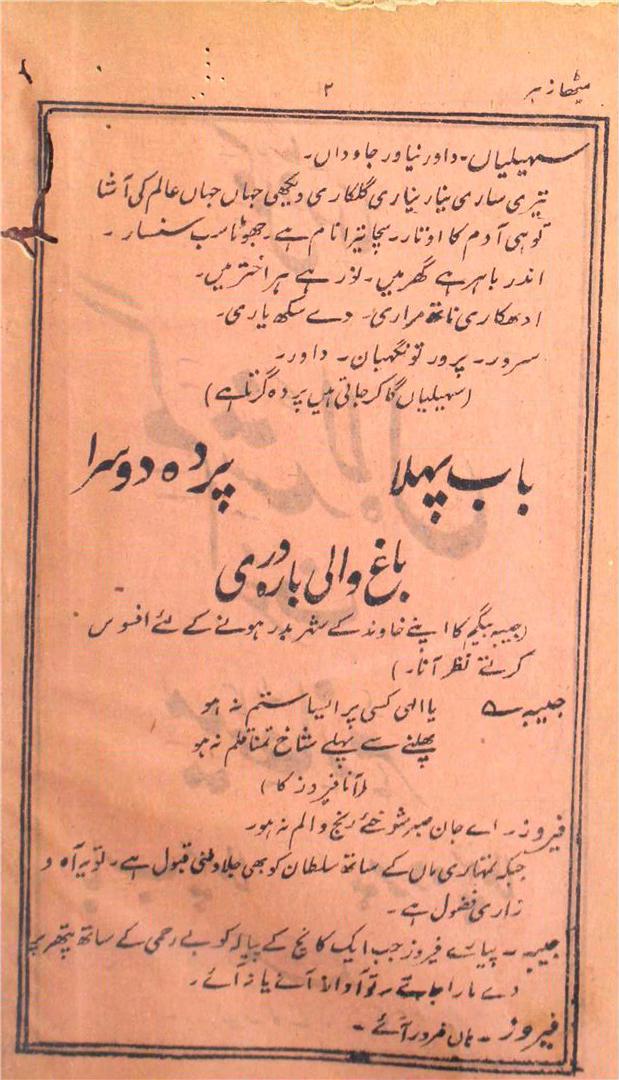 میٹھا زہر
۲
سہیلیاں۔ داور نیاور جاوداں۔
تیری ساری نیار نیاری گلکاری دیکھی جہاں جہاں عالم کی آشا
توہی آدم کا اوتار۔ سچا تیرا نام ہے۔ جھوٹا سب سنسار۔
اندر باہر ہے گھر میں۔ نور ہے ہر اختر میں۔
ادھکاری ناتھ مراری۔ دے سکھ یاری۔
سرور۔ پرور تو نگہبان۔ داور۔
(سہیلیاں گا کر جاتی ہیں پردہ گرتا ہے)
باب پہلا پردہ دوسرا
باغ والی بارہ دوری
(حبیبہ بیگم کا اپنے خاوند کے شہر بدر ہونے کے لئے افسوس
کرتے نظر آنا۔)
حبیبہ ؎ یا الہی کسی پر ایسا ستم نہ ہو
پھلنے سے پہلے شاخ تمنا قلم نہ ہو
(آنا فیروز کا)
فیروز۔ اے جان صبر شو خئے رنج و الم نہ ہو۔
جبکہ تمہاری ماں کے ساتھ سلطان کو بھی جلا وطنی قبول ہے۔ تو یہ آہ و
زاری فضول ہے۔
حبیبہ۔ پیارے فیروز جب ایک کانچ کے پیالہ کو بے رحمی کے ساتھ پتھر پر
دے مارا جائے۔ تو آواز آئے یا نہ آئے۔
فیروز۔ ہاں ضرور آئے۔